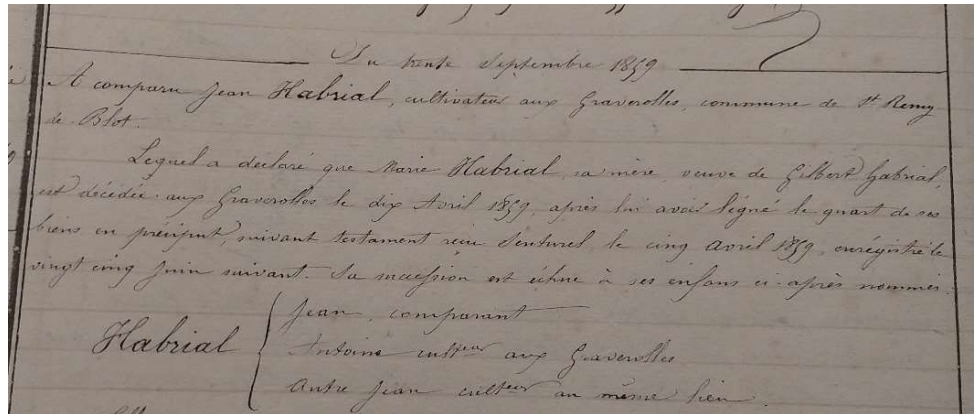 Du trente Septembre 1859
A comparu Jean Habrial, cultivateur aux Graverolles, commune de St Remy
de Blot.
Lequel a déclaré que Marie Habrial, sa mère veuve de Gilbert Gabrial,
est décédée aux Graverolles le dix Avril 1859, après lui avoir légué le quart de ses
biens en préciput, suivant testament reçu le cinq avril 1859, enrégistré le
vingt cinq Juin suivant. Sa succession est échue à ses enfans ci-après nommés:
Jean, comparant
Habrial
Antoine culteur aux Graverolles
Autre Jean culteur au même lieu.